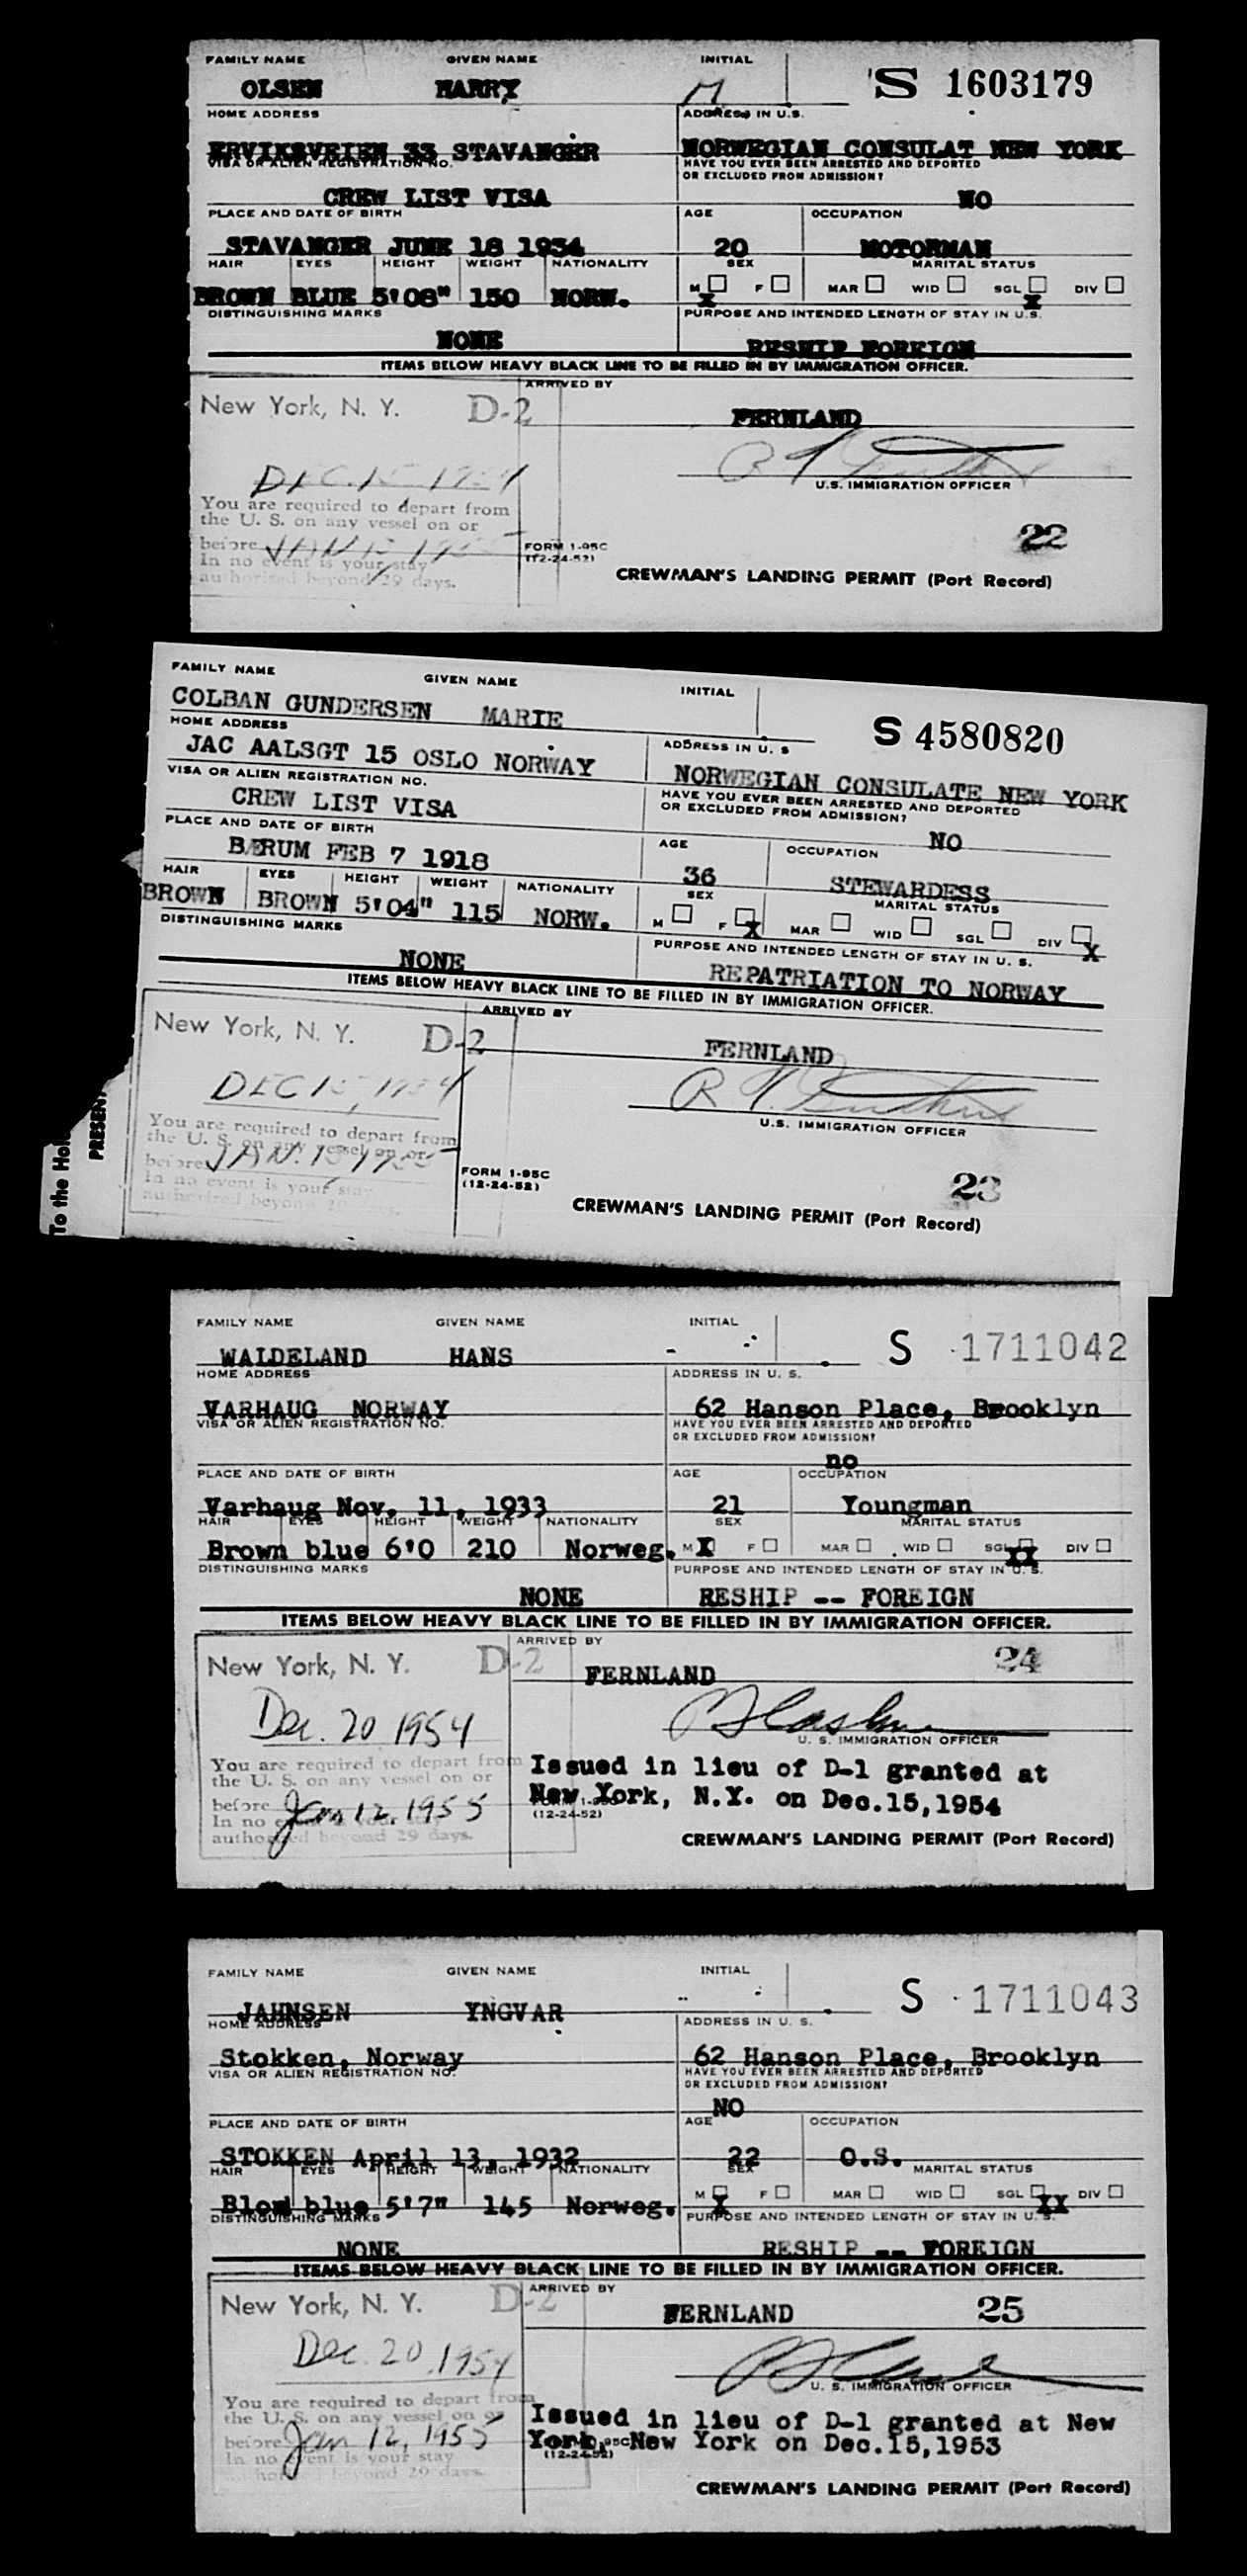 FAMILY NAME GIVEN NAME INITIAL
OLSEN HARRY M S 1603179
HOME ADDRESS ADDRESS IN U.S.
33 STAVANGER NORWEGIAN CONSULAT NEW YORK
VISA OR ALIEN REGISTRATION NO. HAVE YOU EVER BEEN ARRESTED AND DEPORTED
OR EXCLUDED FROM ADMISSION?
CREW LIST VISA NO
PLACE AND DATE OF BIRTH AGE OCCUPATION
STAVANGER JUNE 18 1934 20 MOTORMAN
HAIR EYES HEIGHT WEIGHT NATIONALITY SEX MARITAL STATUS
BROWN BLUE 5'08" 150 NORW. M X F MAR WID SGL X DIV
DISTINGUISHING MARKS PURPOSE AND INTENDED LENGTH OF STAY IN U.S.
NONE RESHIP FOREIGN
ITEMS BELOW HEAVY BLACK LINE TO BE FILLED IN BY IMMIGRATION OFFICER.
New York, N. Y. D-2 ARRIVED BY
FERNLAND
DEC. 15 1954
U.S. IMMIGRATION OFFICER
You are required to depart from
the U. S. on any vessel on or
before JAN 15 1955
In no event is your stay
authorized beyond 29 days.
FORM 1-95C
(12-24-52)
22
CREWMAN'S LANDING PERMIT (Port Record)
FAMILY NAME GIVEN NAME INITIAL
COLBAN GUNDERSEN MARIE S 4580820
HOME ADDRESS ADDRESS IN U. S
JAC AALSGT 15 OSLO NORWAY NORWEGIAN CONSULATE NEW YORK
VISA OR ALIEN REGISTRATION NO. HAVE YOU EVER BEEN ARRESTED AND DEPORTED
OR EXCLUDED FROM ADMISSION?
CREW LIST VISA NO
PLACE AND DATE OF BIRTH AGE OCCUPATION
BÆRUM FEB 7 1918 36 STEWARDESS
HAIR EYES HEIGHT WEIGHT NATIONALITY SEX MARITAL STATUS
BROWN BROWN 5'04" 115 NORW. M F X MAR WID SGL DIV X
DISTINGUISHING MARKS PURPOSE AND INTENDED LENGTH OF STAY IN U. S.
NONE REPATRIATION TO NORWAY
ITEMS BELOW HEAVY BLACK LINE TO BE FILLED IN BY IMMIGRATION OFFICER.
New York, N. Y. D-2 ARRIVED BY
FERNLAND
DEC 15, 1954
U.S. IMMIGRATION OFFICER
You are required to depart from
the U. S. on any vessel on or
before JAN. 15 1955
In no event is your stay
authorized beyond 29 days.
To the Hol
PRESENT
FORM 1-95C
(12-24-52)
23
CREWMAN'S LANDING PERMIT (Port Record)
FAMILY NAME GIVEN NAME INITIAL
WALDELAND HANS - S 1711042
HOME ADDRESS ADDRESS IN U. S.
VARHAUG NORWAY 62 Hanson Place, Brooklyn
VISA OR ALIEN REGISTRATION NO. HAVE YOU EVER BEEN ARRESTED AND DEPORTED
OR EXCLUDED FROM ADMISSION?
no
PLACE AND DATE OF BIRTH AGE OCCUPATION
Varhaug Nov. 11, 1933 21 Youngman
HAIR EYES HEIGHT WEIGHT NATIONALITY SEX MARITAL STATUS
Brown blue 6'0 210 Norweg. M X F MAR WID SGL XX DIV
DISTINGUISHING MARKS PURPOSE AND INTENDED LENGTH OF STAY IN U. S.
NONE RESHIP -- FOREIGN
ITEMS BELOW HEAVY BLACK LINE TO BE FILLED IN BY IMMIGRATION OFFICER.
New York, N. Y. D-2 ARRIVED BY
FERNLAND 24
Dec. 20 1954
U. S. IMMIGRATION OFFICER
You are required to depart from
the U. S. on any vessel on or
before Jan 12, 1955
In no event is your stay
authorized beyond 29 days.
Issued in lieu of D-1 granted at
New York, N.Y. on Dec.15,1954
(12-24-52)
CREWMAN'S LANDING PERMIT (Port Record)
FAMILY NAME GIVEN NAME INITIAL
JAHNSEN YNGVAR S 1711043
HOME ADDRESS ADDRESS IN U. S.
Stokken, Norway 62 Hanson Place, Brooklyn
VISA OR ALIEN REGISTRATION NO. HAVE YOU EVER BEEN ARRESTED AND DEPORTED
OR EXCLUDED FROM ADMISSION?
NO
PLACE AND DATE OF BIRTH AGE OCCUPATION
STOKKEN April 13, 1932 22 O.S.
HAIR EYES HEIGHT WEIGHT NATIONALITY SEX MARITAL STATUS
Blond blue 5'7" 145 Norweg. M X F MAR WID SGL XX DIV
DISTINGUISHING MARKS PURPOSE AND INTENDED LENGTH OF STAY IN U. S.
NONE RESHIP -- FOREIGN
ITEMS BELOW HEAVY BLACK LINE TO BE FILLED IN BY IMMIGRATION OFFICER.
New York, N. Y. D-2 ARRIVED BY
FERNLAND 25
Dec. 20, 1954
U. S. IMMIGRATION OFFICER
You are required to depart from
the U. S. on any vessel on or
before Jan 12, 1955
In no event is your stay
authorized beyond 29 days.
Issued in lieu of D-1 granted at New
York, New York on Dec.15,1953
(12-24-52)
CREWMAN'S LANDING PERMIT (Port Record)